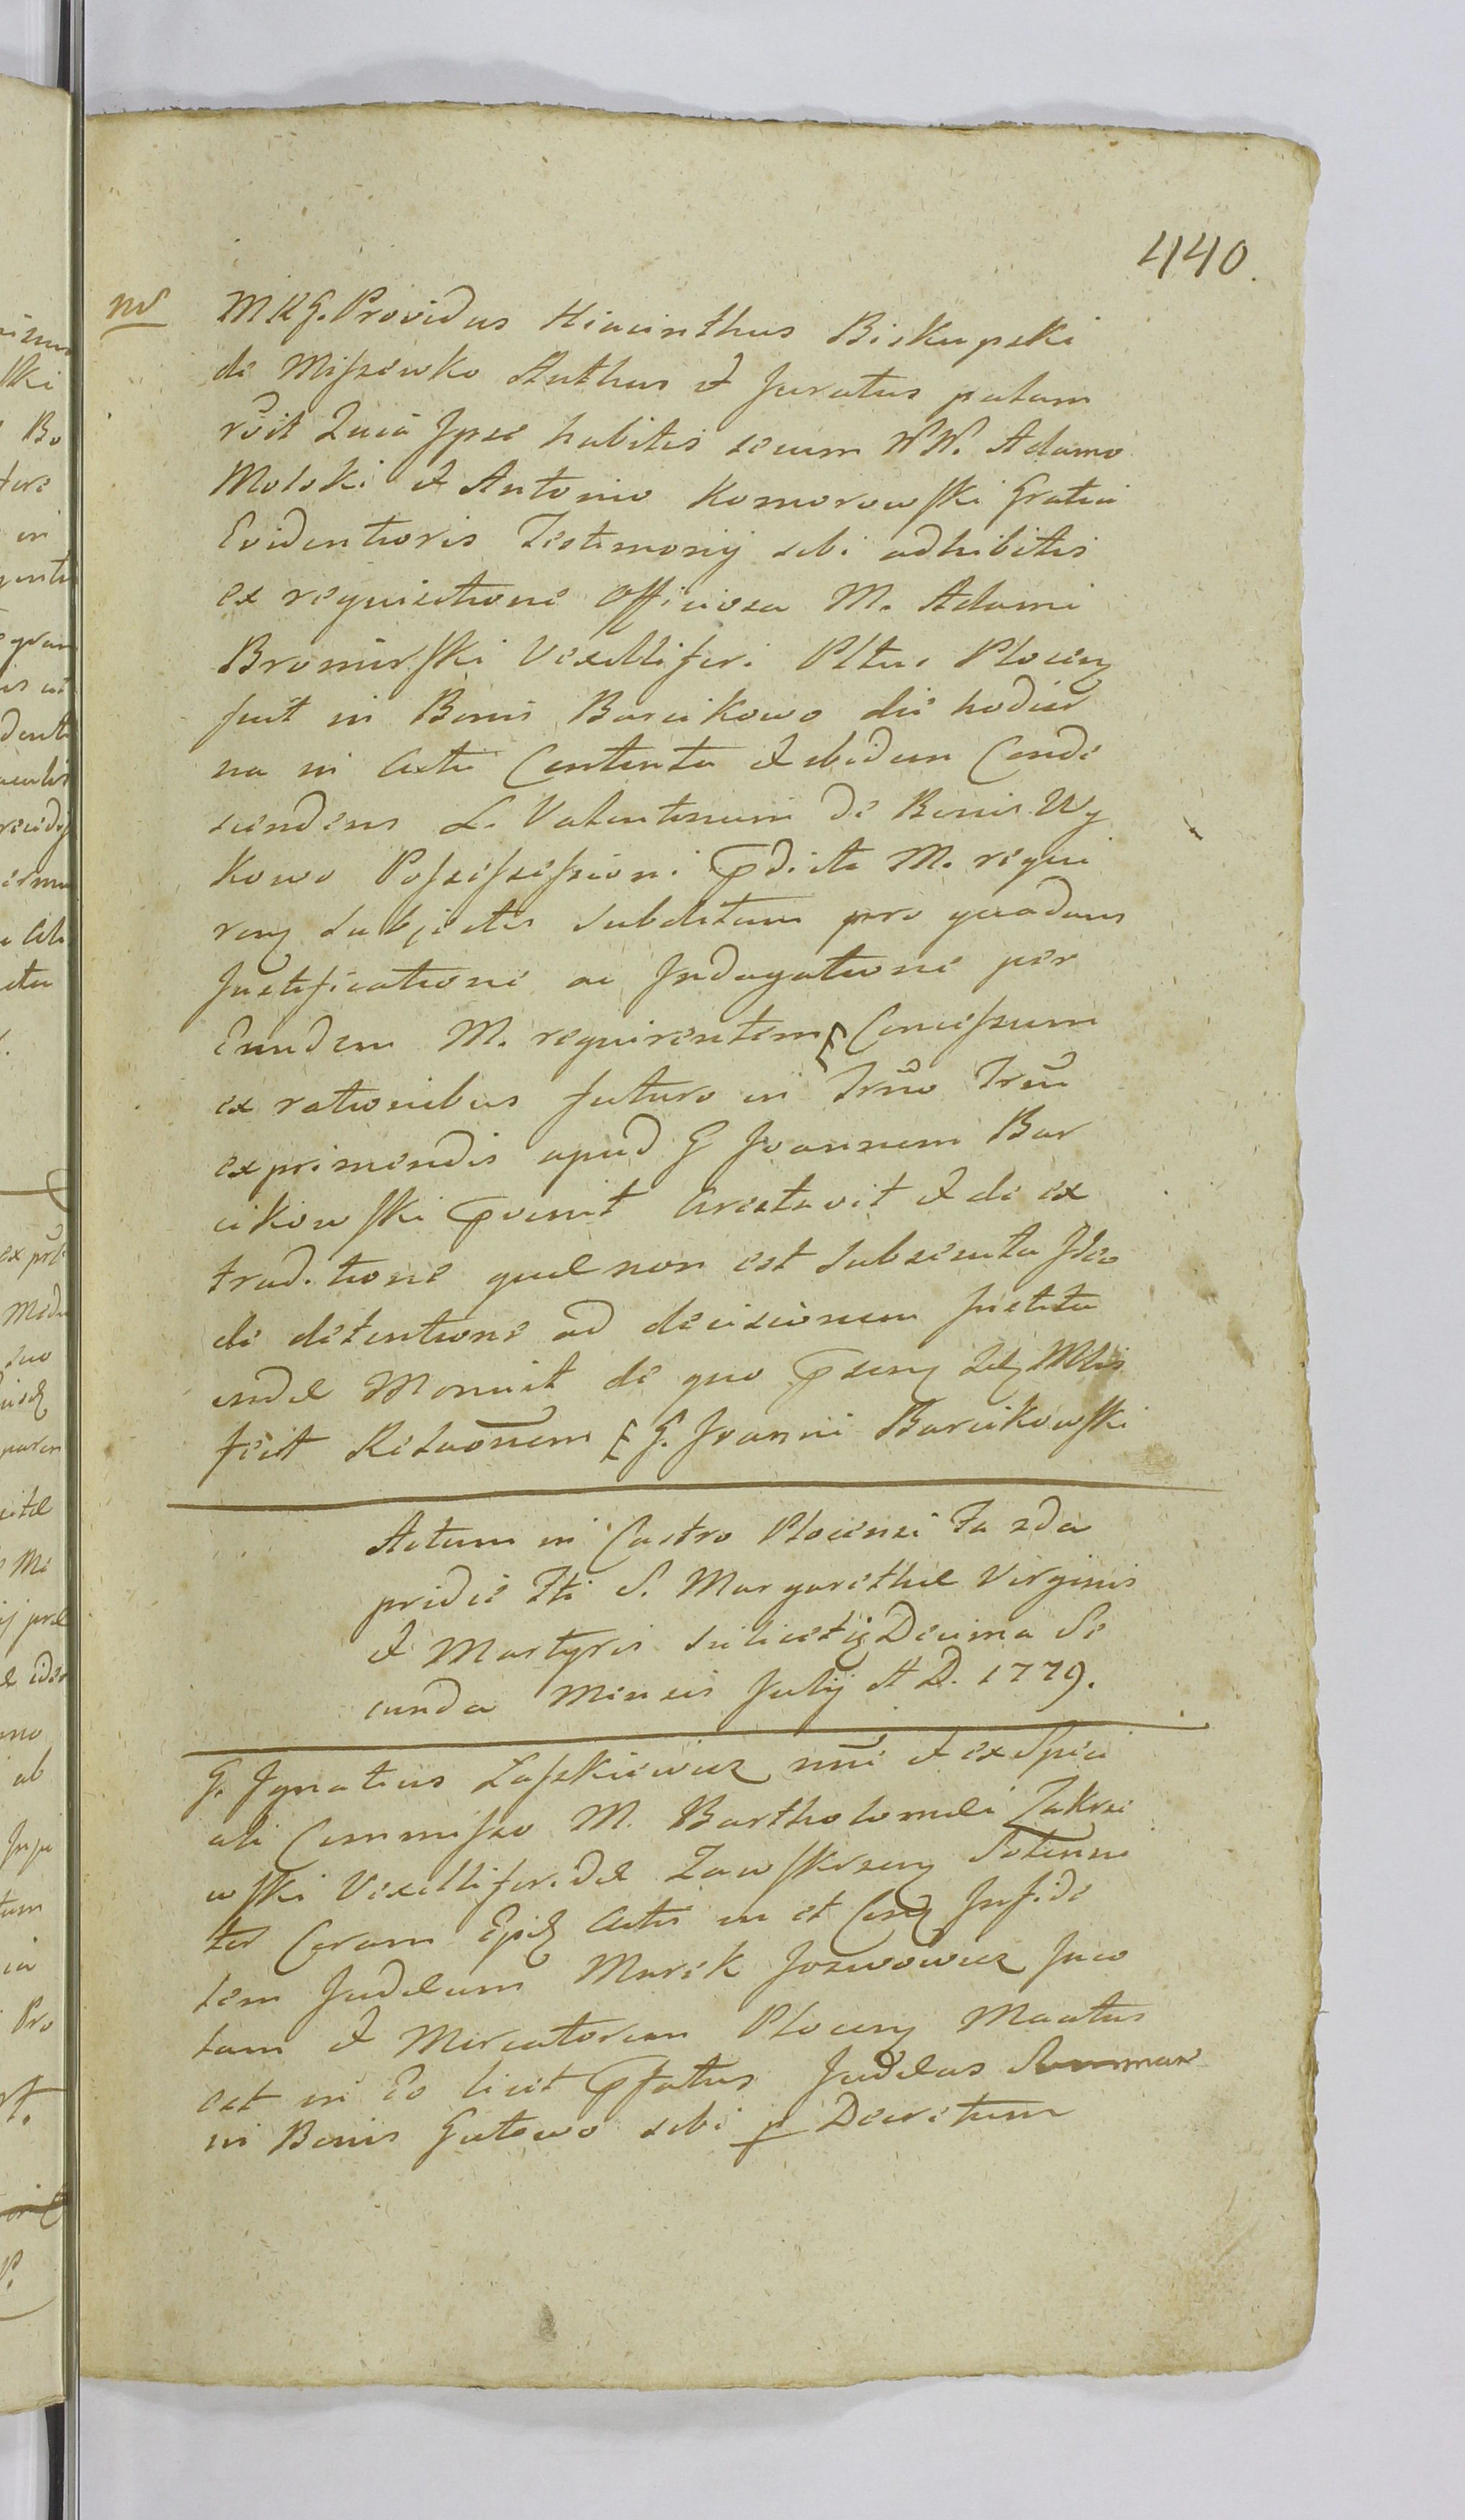 440.
nd
MRG. Providus Hiacinthus Biskupski
de Miszewko Authus et Juratus palam
rēcit Quia Ipse habitis secum NN. Adamo
Moloki et Antonio Komorowski Gratia
Evidentioris Testimonij sibi adhibitis
ex requisitione Officiosa M. Adami
Bromirski Vexilliferi Pltus Plocen
fuit in Bonis Barcikowo die hodier
na in actu Contenta et ibidem Conde
scendens L. Valentinum de Bonis Wy
kowo Possessessioni pdicti M. requi
ren subjectis subditum pro quadam
Justificatione ac Indagatione per
Eundem M. requirentem Concessum
ex rationibus futuro in Trno Trni
exprimendis apud G Joannem Bar
cikowski pvenit Arestavit et de ex
traditione quae non est subsecuta Ideo
de detentione ad decisionem Justitia
endae Monuit de quo psens Mlis
fecit Relaõnem G. Joanni Barcikowski
Actum in Castro Plocensi Fa 2da
pridie Fti S. Margarethae Virginis
et Martyris scilicet Decima Se
cunda Mensis Julij A D. 1779.
G. Ignatius Laszkiewicz nñe et ex Speci
ali Commisso M. Bartholomaei Zakrze
wski Vexilliferidae Zawskrzen Solenni
ter Coram Actis in et Infide
lem Judaeum Marek Jozwowicz Inco
lam et Mercatorem Plocen Mãtus
est in Eo licet pfatus Judaeus Summam
in Bonis Gutowo sibi p Decretum